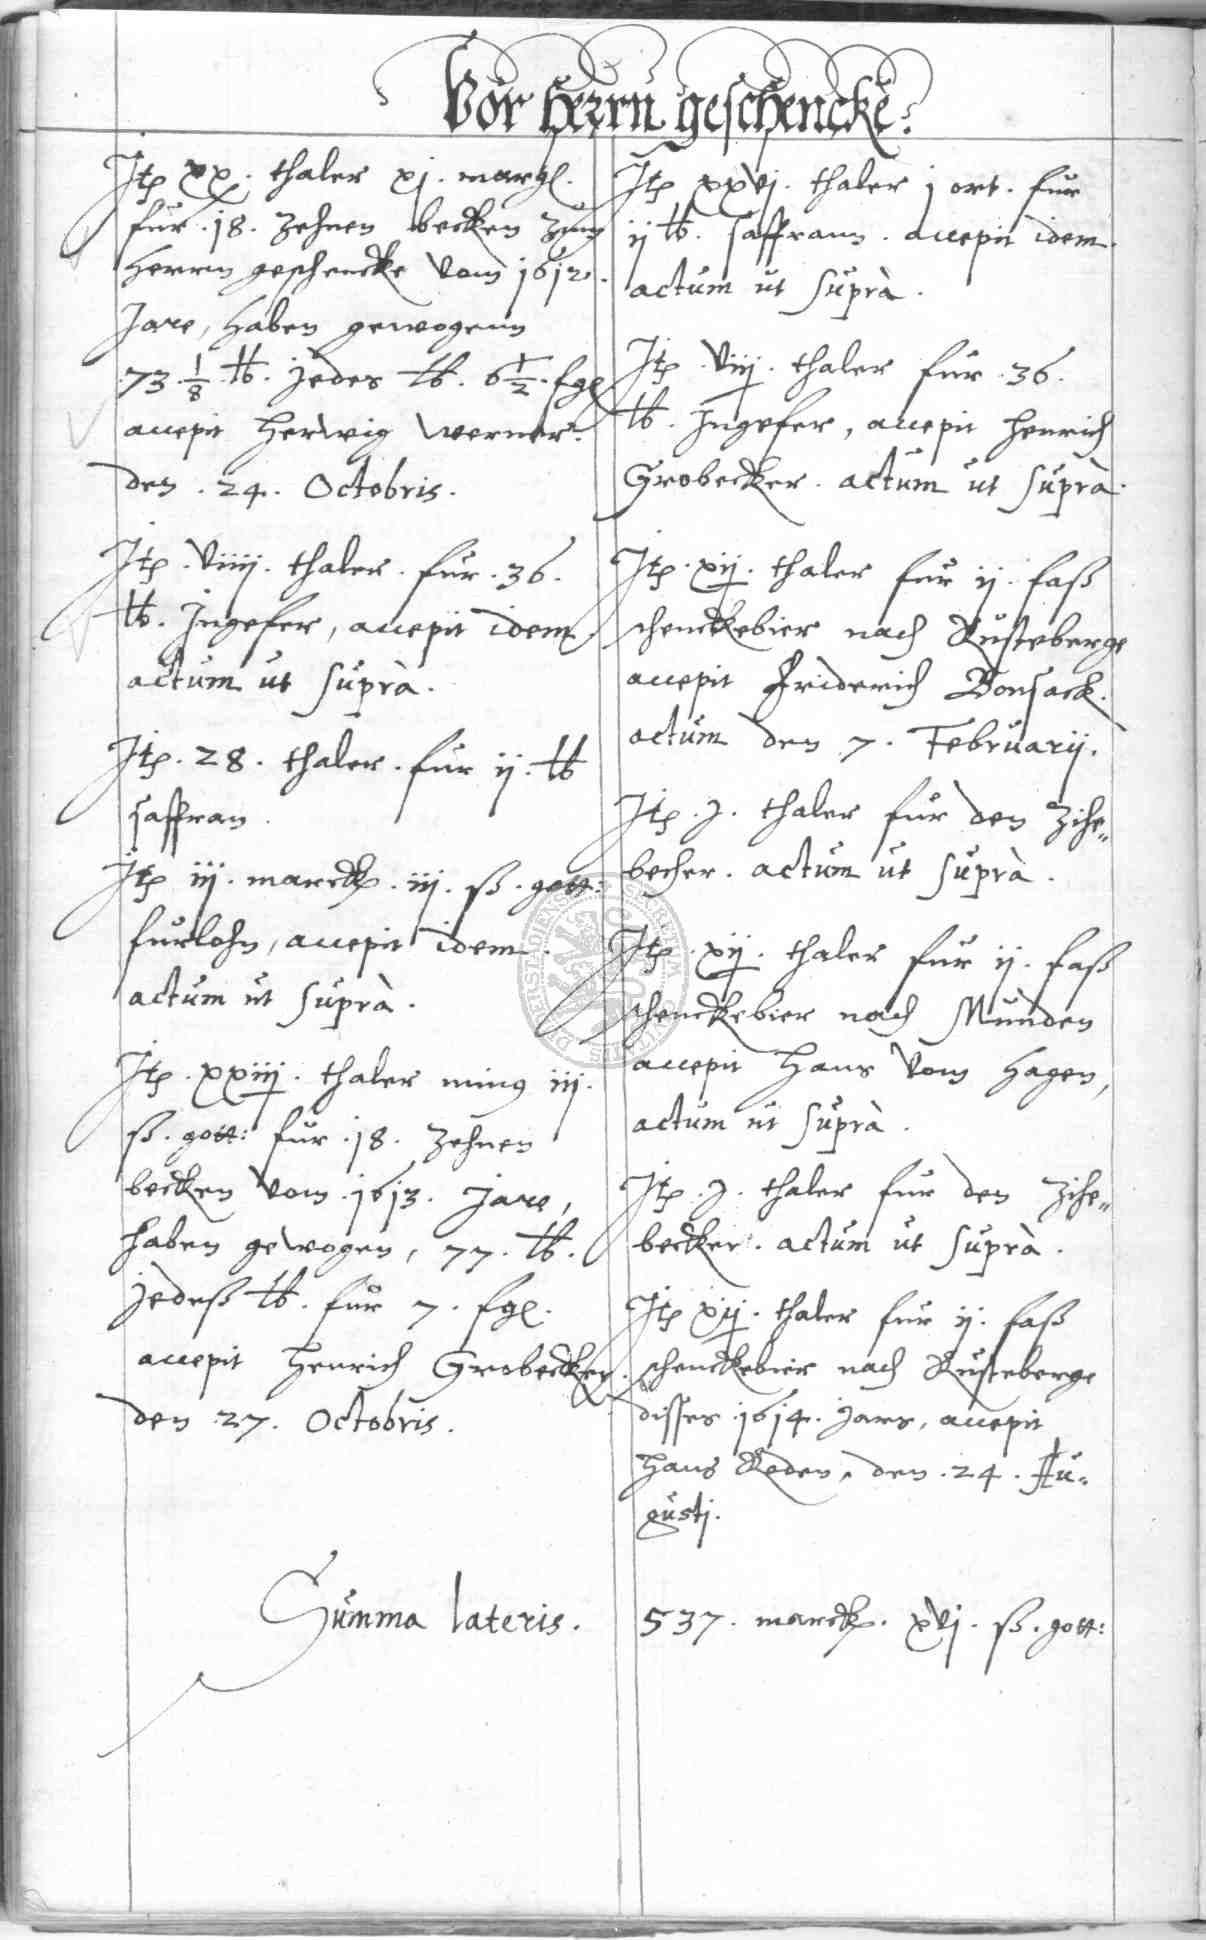 Vor Herrn geschencke.
Itp xx. thaler xj. margl.
für .18. Zehnen becken zum
Herrn geschencke vom 1612.
Jare, haben gewogenn
73 1/8 lb. jedes lb. 6 1/2 fgl
accepit Herwig Werner.
den .24. Octobris.
Itp. viiij. thaler. für .36.
lb. Ingefer, accepit idem.
actum ut suprà.
Itp. 28. thaler. für ij. lb
saffran.
Itp iij. marck. iij. ß. gott:
furlohn, accepit idem.
actum ut suprà.
Itp. xxiiij. thaler minus iij.
ß. gott: für .18. Zehnen
becken vom .1613. Jare,
haben gewogen, 77. lb.
jedeß lb. für 7. fgl.
accepit Henrich Grobecker.
den 27. Octobris.
Itp xxvj. thaler j ort. für
ij lb. saffrann. accepit idem.
actum ut suprà.
Itp. viij. thaler für .36.
lb. Ingefer, accepit Henrich
Grobecker. actum ut suprà.
Itp. xij. thaler für ij. faß
schenckebier nach Rusteberge
accepit Friderich Bonsack.
actum den 7. Februarij.
Itp. j. thaler für den Zihe„
becher. actum ut suprà.
Itp. xij. thaler für ij. faß
schenckebier nach Münden
accepit Hans vom Hagen,
actum ut suprà.
Itp. j. thaler für den Zihe„
becker. actum ut suprà.
Itp xij. thaler für ij. faß
schenckebier nach Rusteberge
disses 1614. Jars, accepit
Hans Roden, den .24. Au-
gusti.
Summa lateris. 537. marck. xvj. ß. gott: